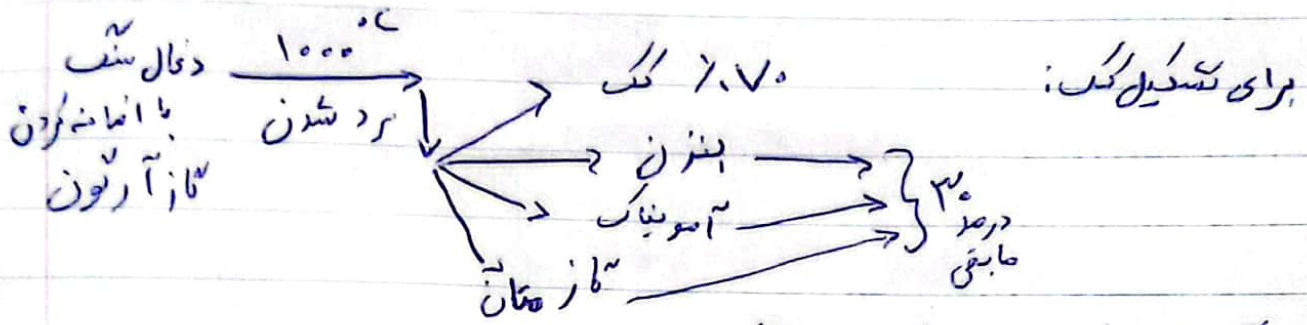 برای تشکیل کک:
دغال سنگ
با اضافه کردن
گاز آرگون
۱۰۰۰ °C
سرد شدن
۷۰٪ کک
بنزن
آمونیاک
گاز متان
۳۰
درصد
مابقی